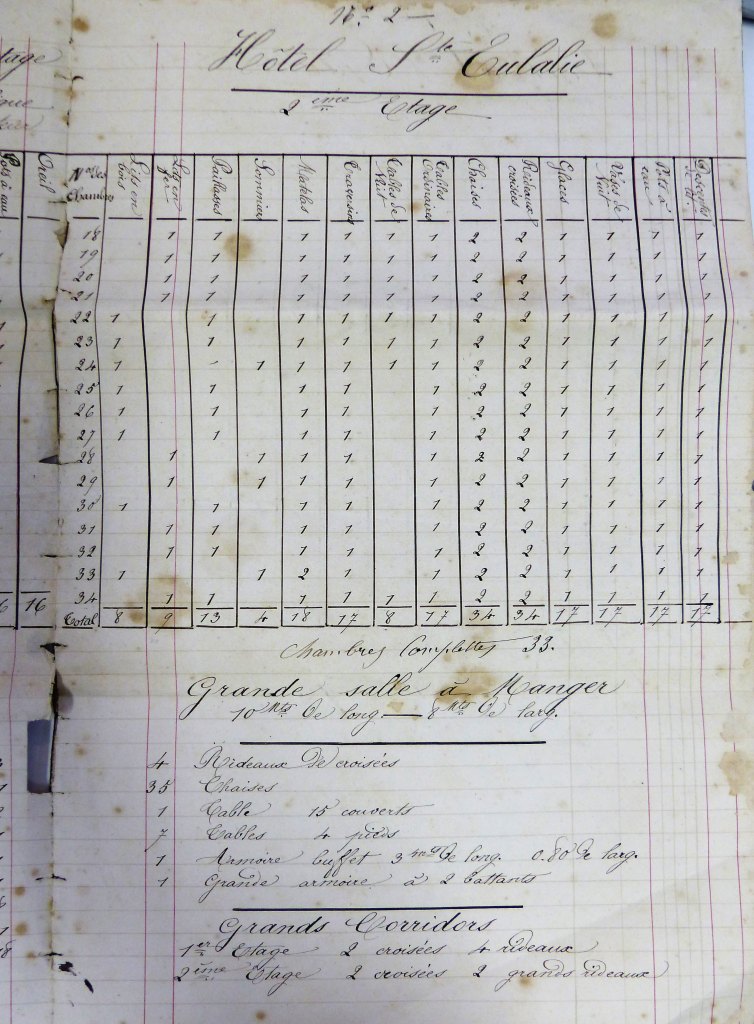 Nº 2 —
Hôtel Ste Eulalie
2ème Etage
Nos des Chambres | Lits en bois | Lits en fer | Paillasses | Sommiers | Matelas | Traversins | Tables de Nuit | Tables Ordinaires | Chaises | Rideaux croisées | Glaces | Vases de Nuit | Pots à eau | Descentes de lit
18 | | 1 | 1 | | 1 | 1 | 1 | 1 | 2 | 2 | 1 | 1 | 1 | 1
19 | | 1 | 1 | | 1 | 1 | 1 | 1 | 2 | 2 | 1 | 1 | 1 | 1
20 | | 1 | 1 | | 1 | 1 | 1 | 1 | 2 | 2 | 1 | 1 | 1 | 1
21 | | 1 | 1 | | 1 | 1 | 1 | 1 | 2 | 2 | 1 | 1 | 1 | 1
22 | 1 | | 1 | | 1 | 1 | 1 | 1 | 2 | 2 | 1 | 1 | 1 | 1
23 | 1 | | 1 | | 1 | 1 | 1 | 1 | 2 | 2 | 1 | 1 | 1 | 1
24 | 1 | | - | 1 | 1 | 1 | 1 | 1 | 2 | 2 | 1 | 1 | 1 | 1
25 | 1 | | 1 | | 1 | 1 | | 1 | 2 | 2 | 1 | 1 | 1 | 1
26 | 1 | | 1 | | 1 | 1 | | 1 | 2 | 2 | 1 | 1 | 1 | 1
27 | 1 | | 1 | | 1 | 1 | | 1 | 2 | 2 | 1 | 1 | 1 | 1
28 | | 1 | | 1 | 1 | 1 | | 1 | 2 | 2 | 1 | 1 | 1 | 1
29 | | 1 | | 1 | 1 | 1 | | 1 | 2 | 2 | 1 | 1 | 1 | 1
30 | 1 | | 1 | | 1 | 1 | | 1 | 2 | 2 | 1 | 1 | 1 | 1
31 | | 1 | 1 | | 1 | 1 | | 1 | 2 | 2 | 1 | 1 | 1 | 1
32 | | 1 | 1 | | 1 | 1 | | 1 | 2 | 2 | 1 | 1 | 1 | 1
33 | 1 | | | 1 | 2 | 1 | | 1 | 2 | 2 | 1 | 1 | 1 | 1
34 | | 1 | 1 | | 1 | 1 | 1 | 1 | 2 | 2 | 1 | 1 | 1 | 1
Total | 8 | 9 | 13 | 4 | 18 | 17 | 8 | 17 | 34 | 34 | 17 | 17 | 17 | 17
Chambres Complettes 33.
Grande salle à Manger
10 Mts de long — 8 Mts de larg.
4 Rideaux de croisées
35 Chaises
1 Table 15 couverts
7 Tables 4 pieds
1 Armoire buffet 3 mts de long. 0.80 de larg.
1 Grande armoire à 2 battants
Grands Corridors
1er Etage 2 croisées 4 rideaux
2ème Etage 2 croisées 2 grands rideaux